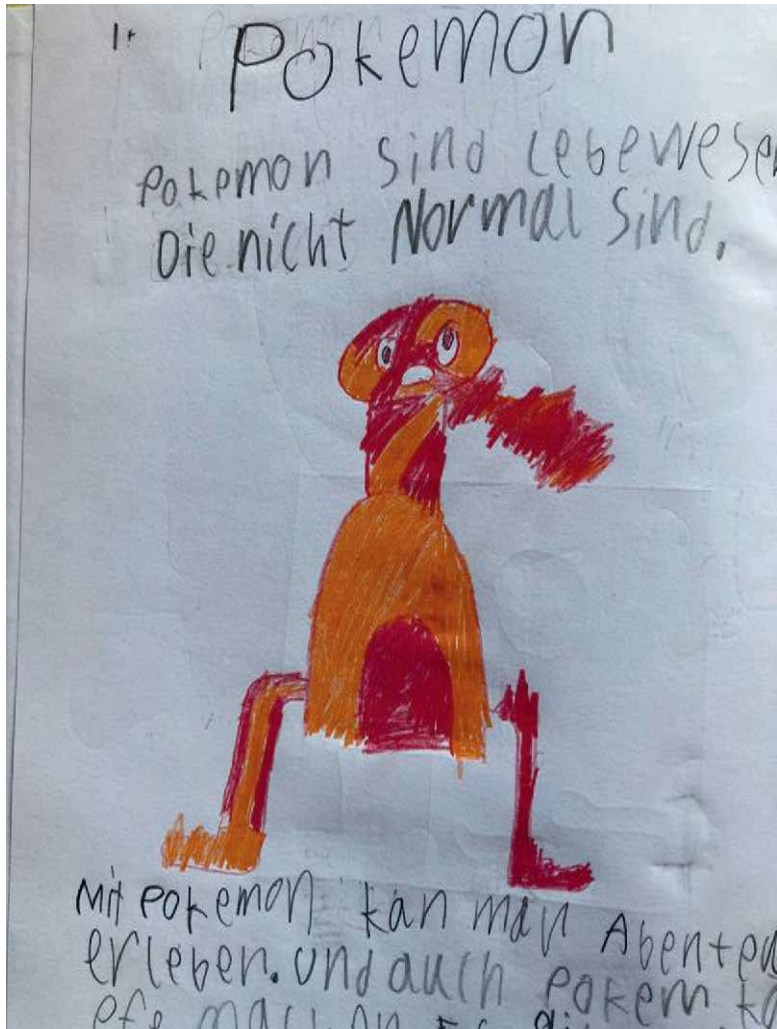 Pokemon
Pokemon sind Lebewesen
Die nicht Normal sind.
Mit Pokemon kan man Abenteu
erleben. Und auch Pokem